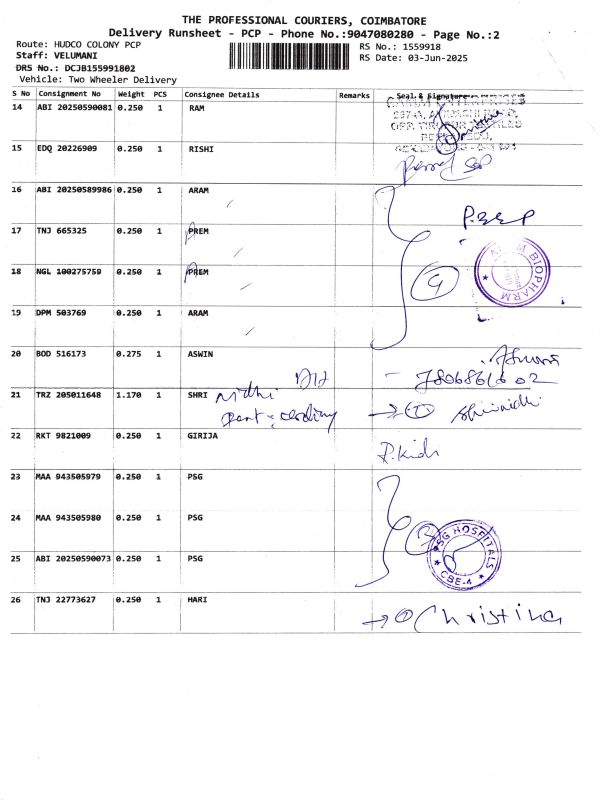 THE PROFESSIONAL COURIERS, COIMBATORE
Delivery Runsheet - PCP - Phone No.:9047080280 - Page No.:2
Route: HUDCO COLONY PCP
Staff: VELUMANI
DRS No.: DCJB155991802
Vehicle: Two Wheeler Delivery
RS No.: 1559918
RS Date: 03-Jun-2025
S No Consignment No Weight PCS Consignee Details Remarks Seal & Signature
14 ABI 20250590081 0.250 1 RAM
15 EDQ 20226909 0.250 1 RISHI
16 ABI 20250589986 0.250 1 ARAM
17 TNJ 665325 0.250 1 PREM
18 NGL 100275759 0.250 1 PREM
19 DPM 503769 0.250 1 ARAM
BIOPHARM
20 BOD 516173 0.275 1 ASWIN
21 TRZ 205011648 1.170 1 SHRI nidhi
22 RKT 9821009 0.250 1 GIRIJA
23 MAA 943505979 0.250 1 PSG
24 MAA 943505980 0.250 1 PSG
PSG HOSPITALS
CBE-4
25 ABI 20250590073 0.250 1 PSG
26 TNJ 22773627 0.250 1 HARI
Christina